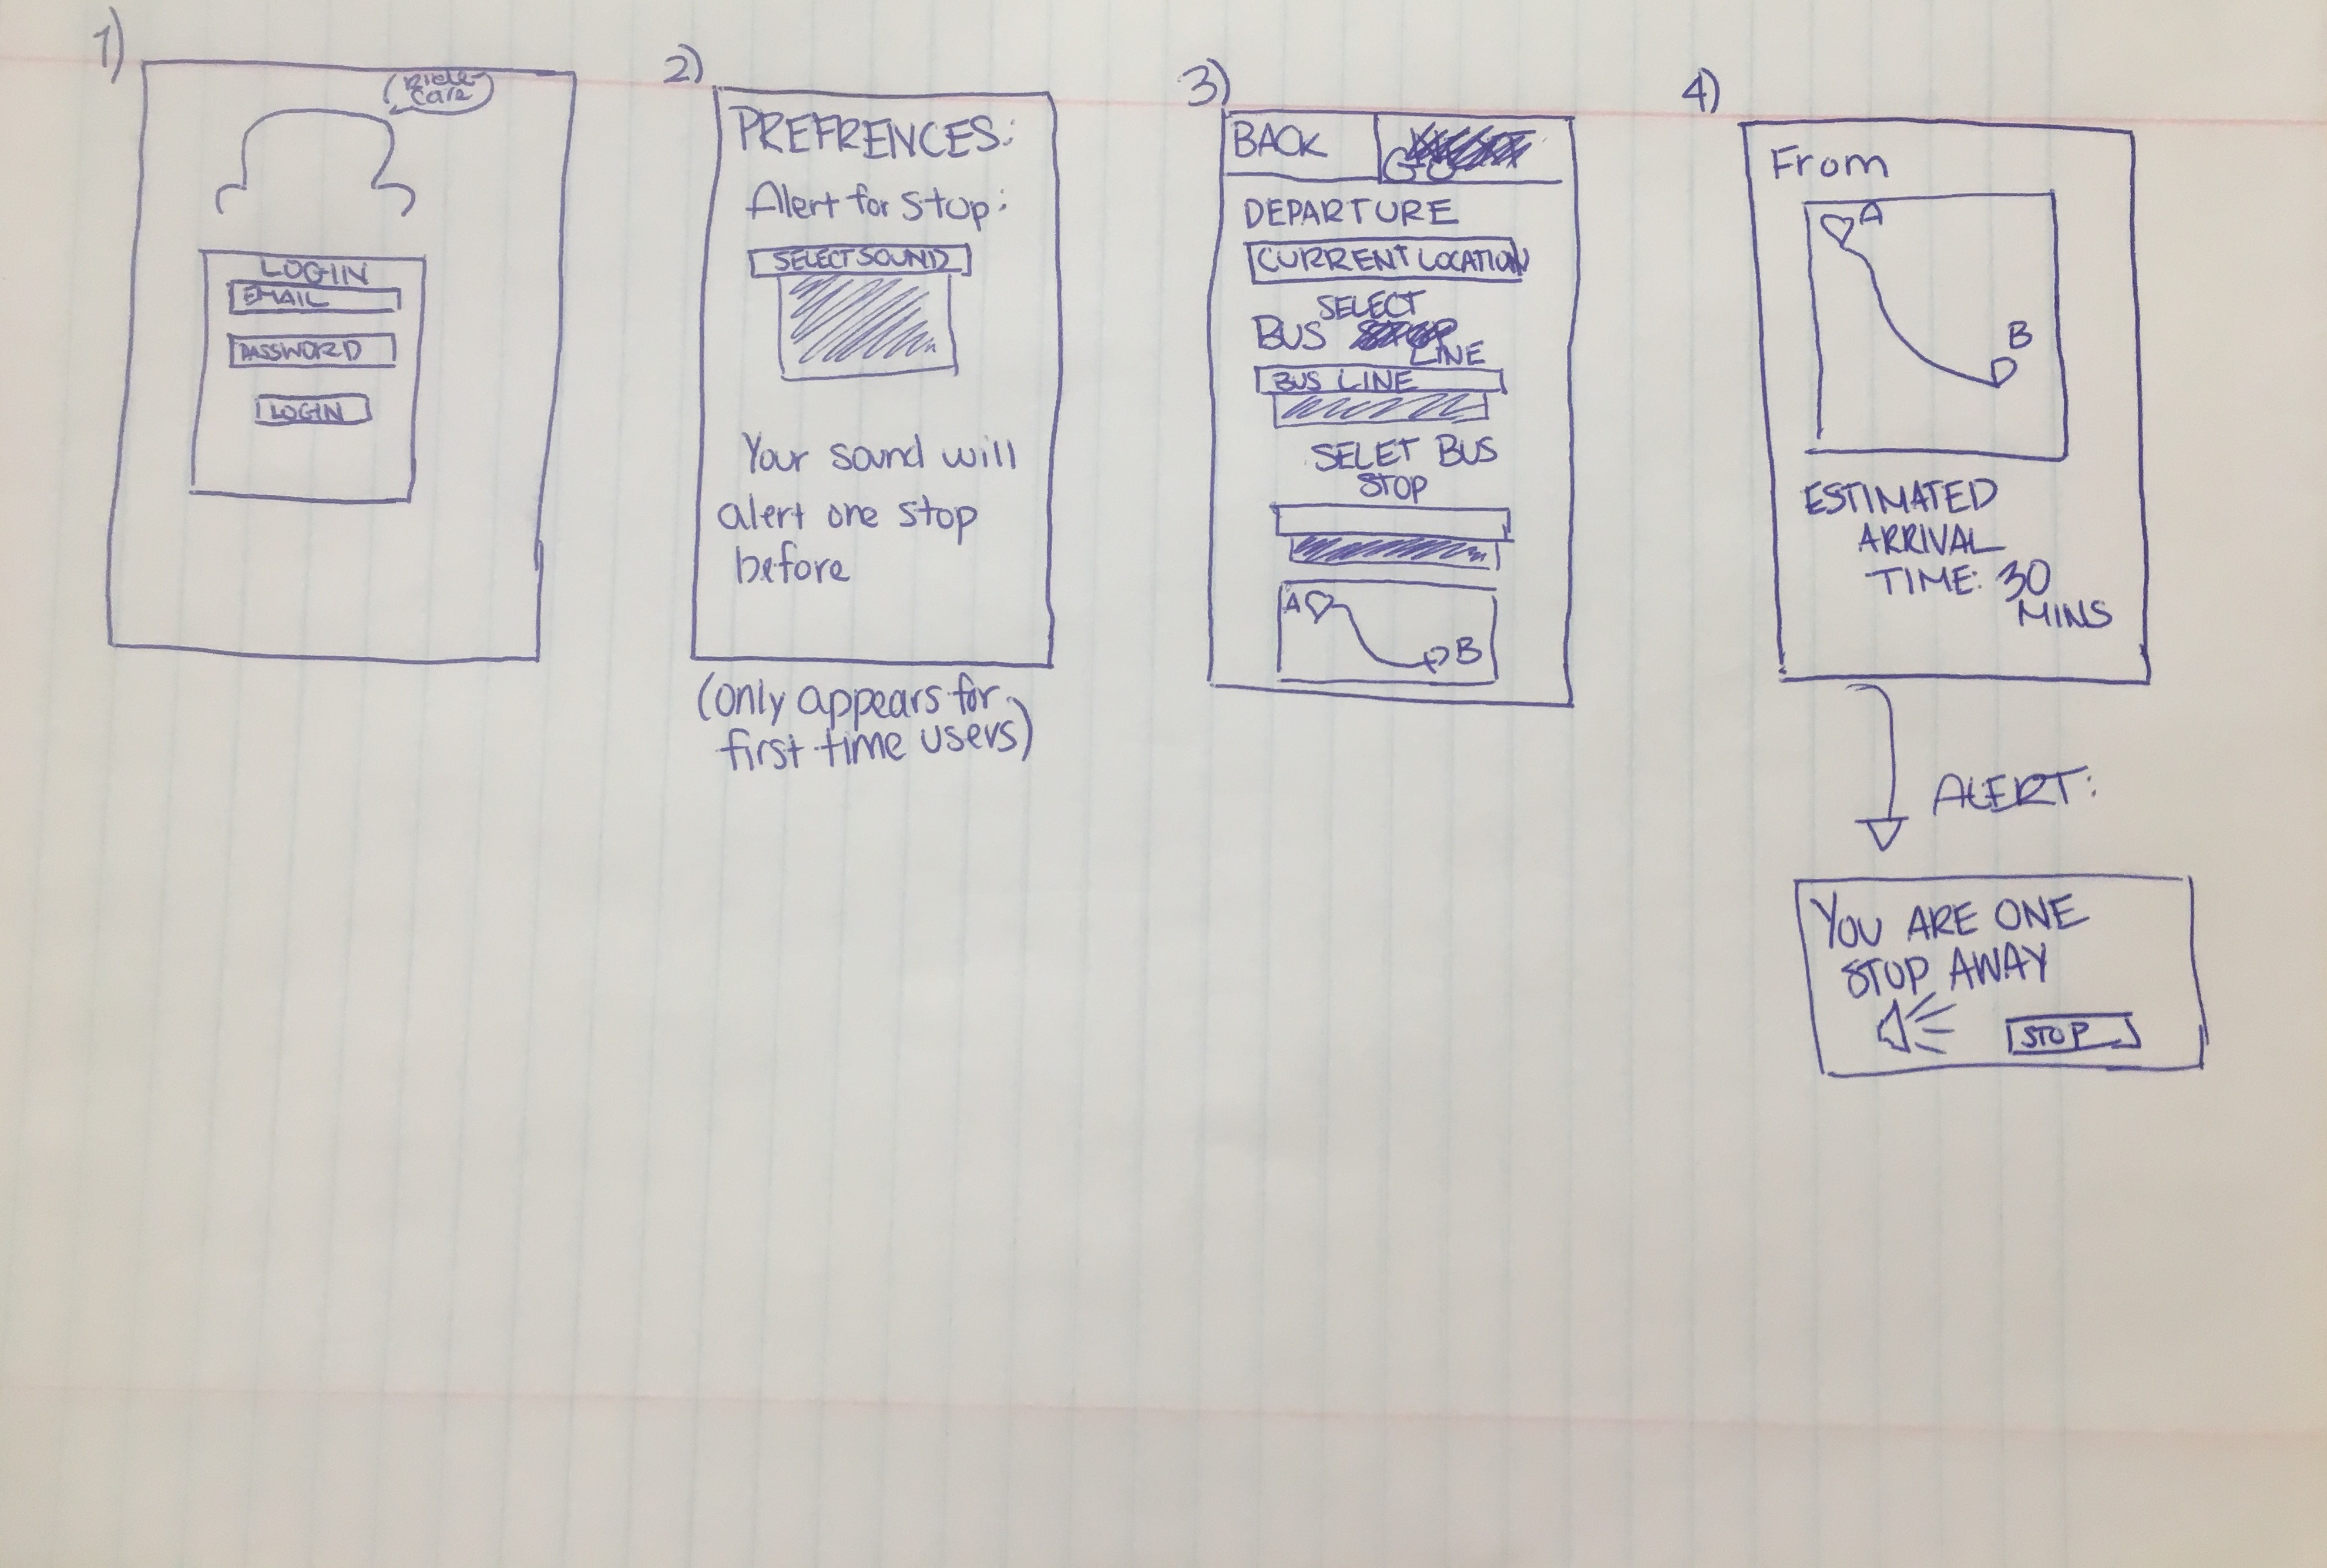 1)
Ride
Care
LOGIN
EMAIL
PASSWORD
LOGIN
2)
PREFRENCES:
Alert for stop:
SELECT SOUND
Your sound will
alert one stop
before
(only appears for
first time users)
3)
BACK
GO
DEPARTURE
CURRENT LOCATION
SELECT
BUS
LINE
BUS LINE
SELET BUS
STOP
A
B
4)
From
A
B
ESTIMATED
ARRIVAL
TIME: 30
MINS
ALERT:
YOU ARE ONE
STOP AWAY
STOP